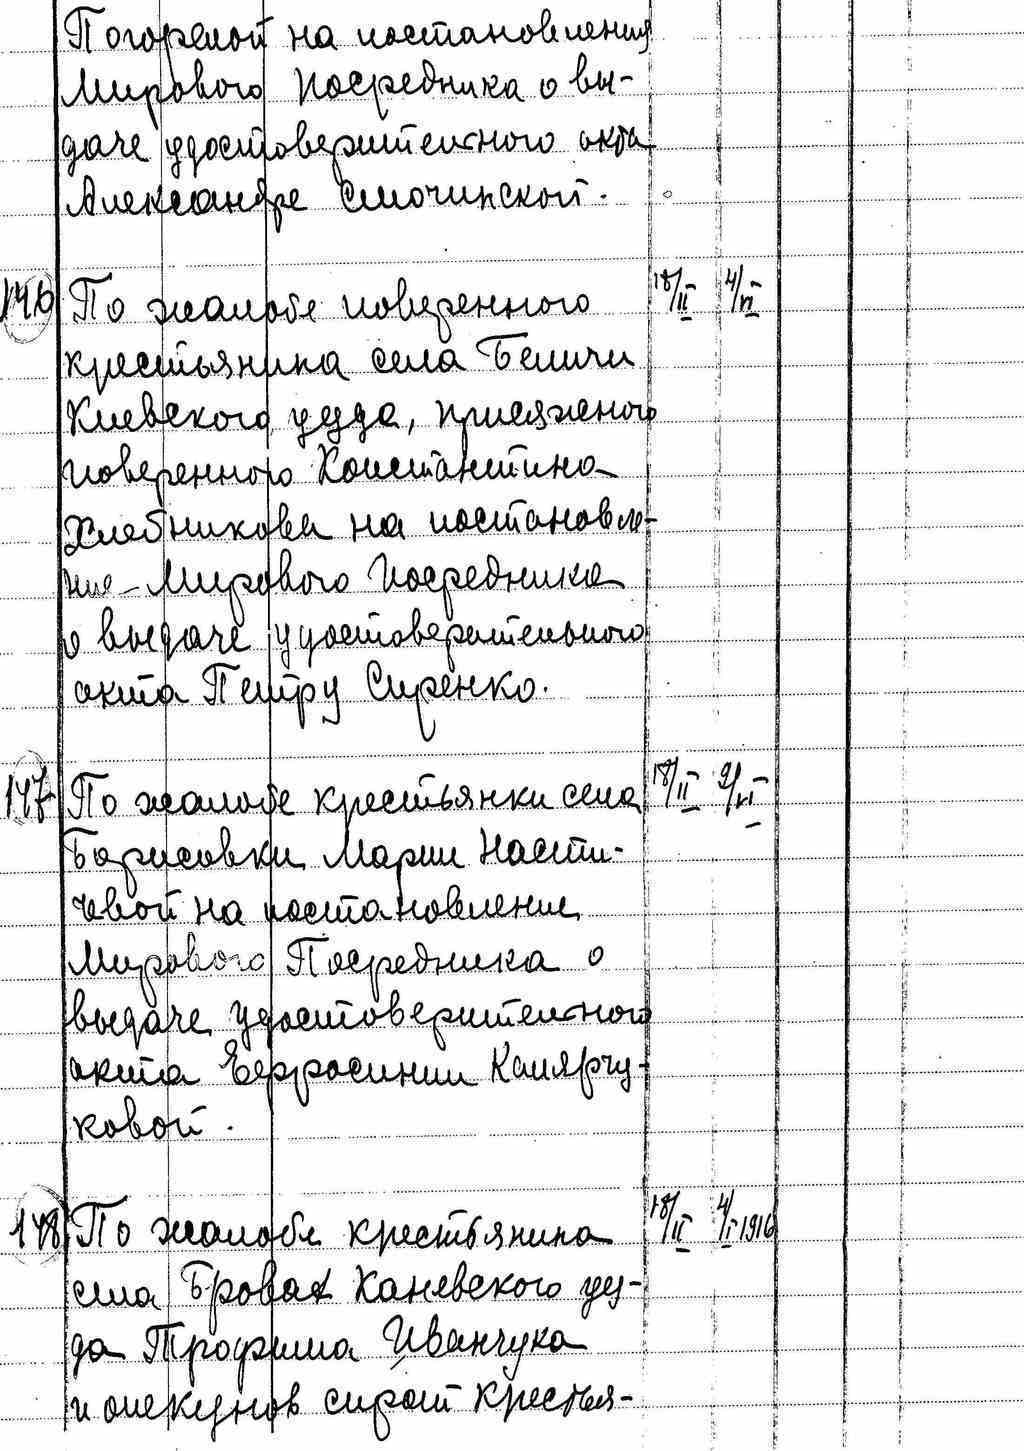 Погорелой на постановления
Мирового Посредника о вы-
даче удостоверительного акта
Александре Смочинской.
146 По жалобе поверенного 18/II 4/VI
крестьянина села Беличи
Киевского уезда, присяженого
поверенного Константина
Хлебникова на постановле-
ние Мирового Посредника
о выдаче удостоверительного
акта Петру Сиренко.
147 По жалобе крестьянки села 18/II 9/VI
Борисовки Марии
на постановление
Мирового Посредника о
выдаче удостоверительного
акта Ефросинии
ковой.
148 По жалобе крестьянина 18/II 4/I 1916
села Бровах Каневского уез-
да Трофима Иванчука
и опекунов сирот крестья-